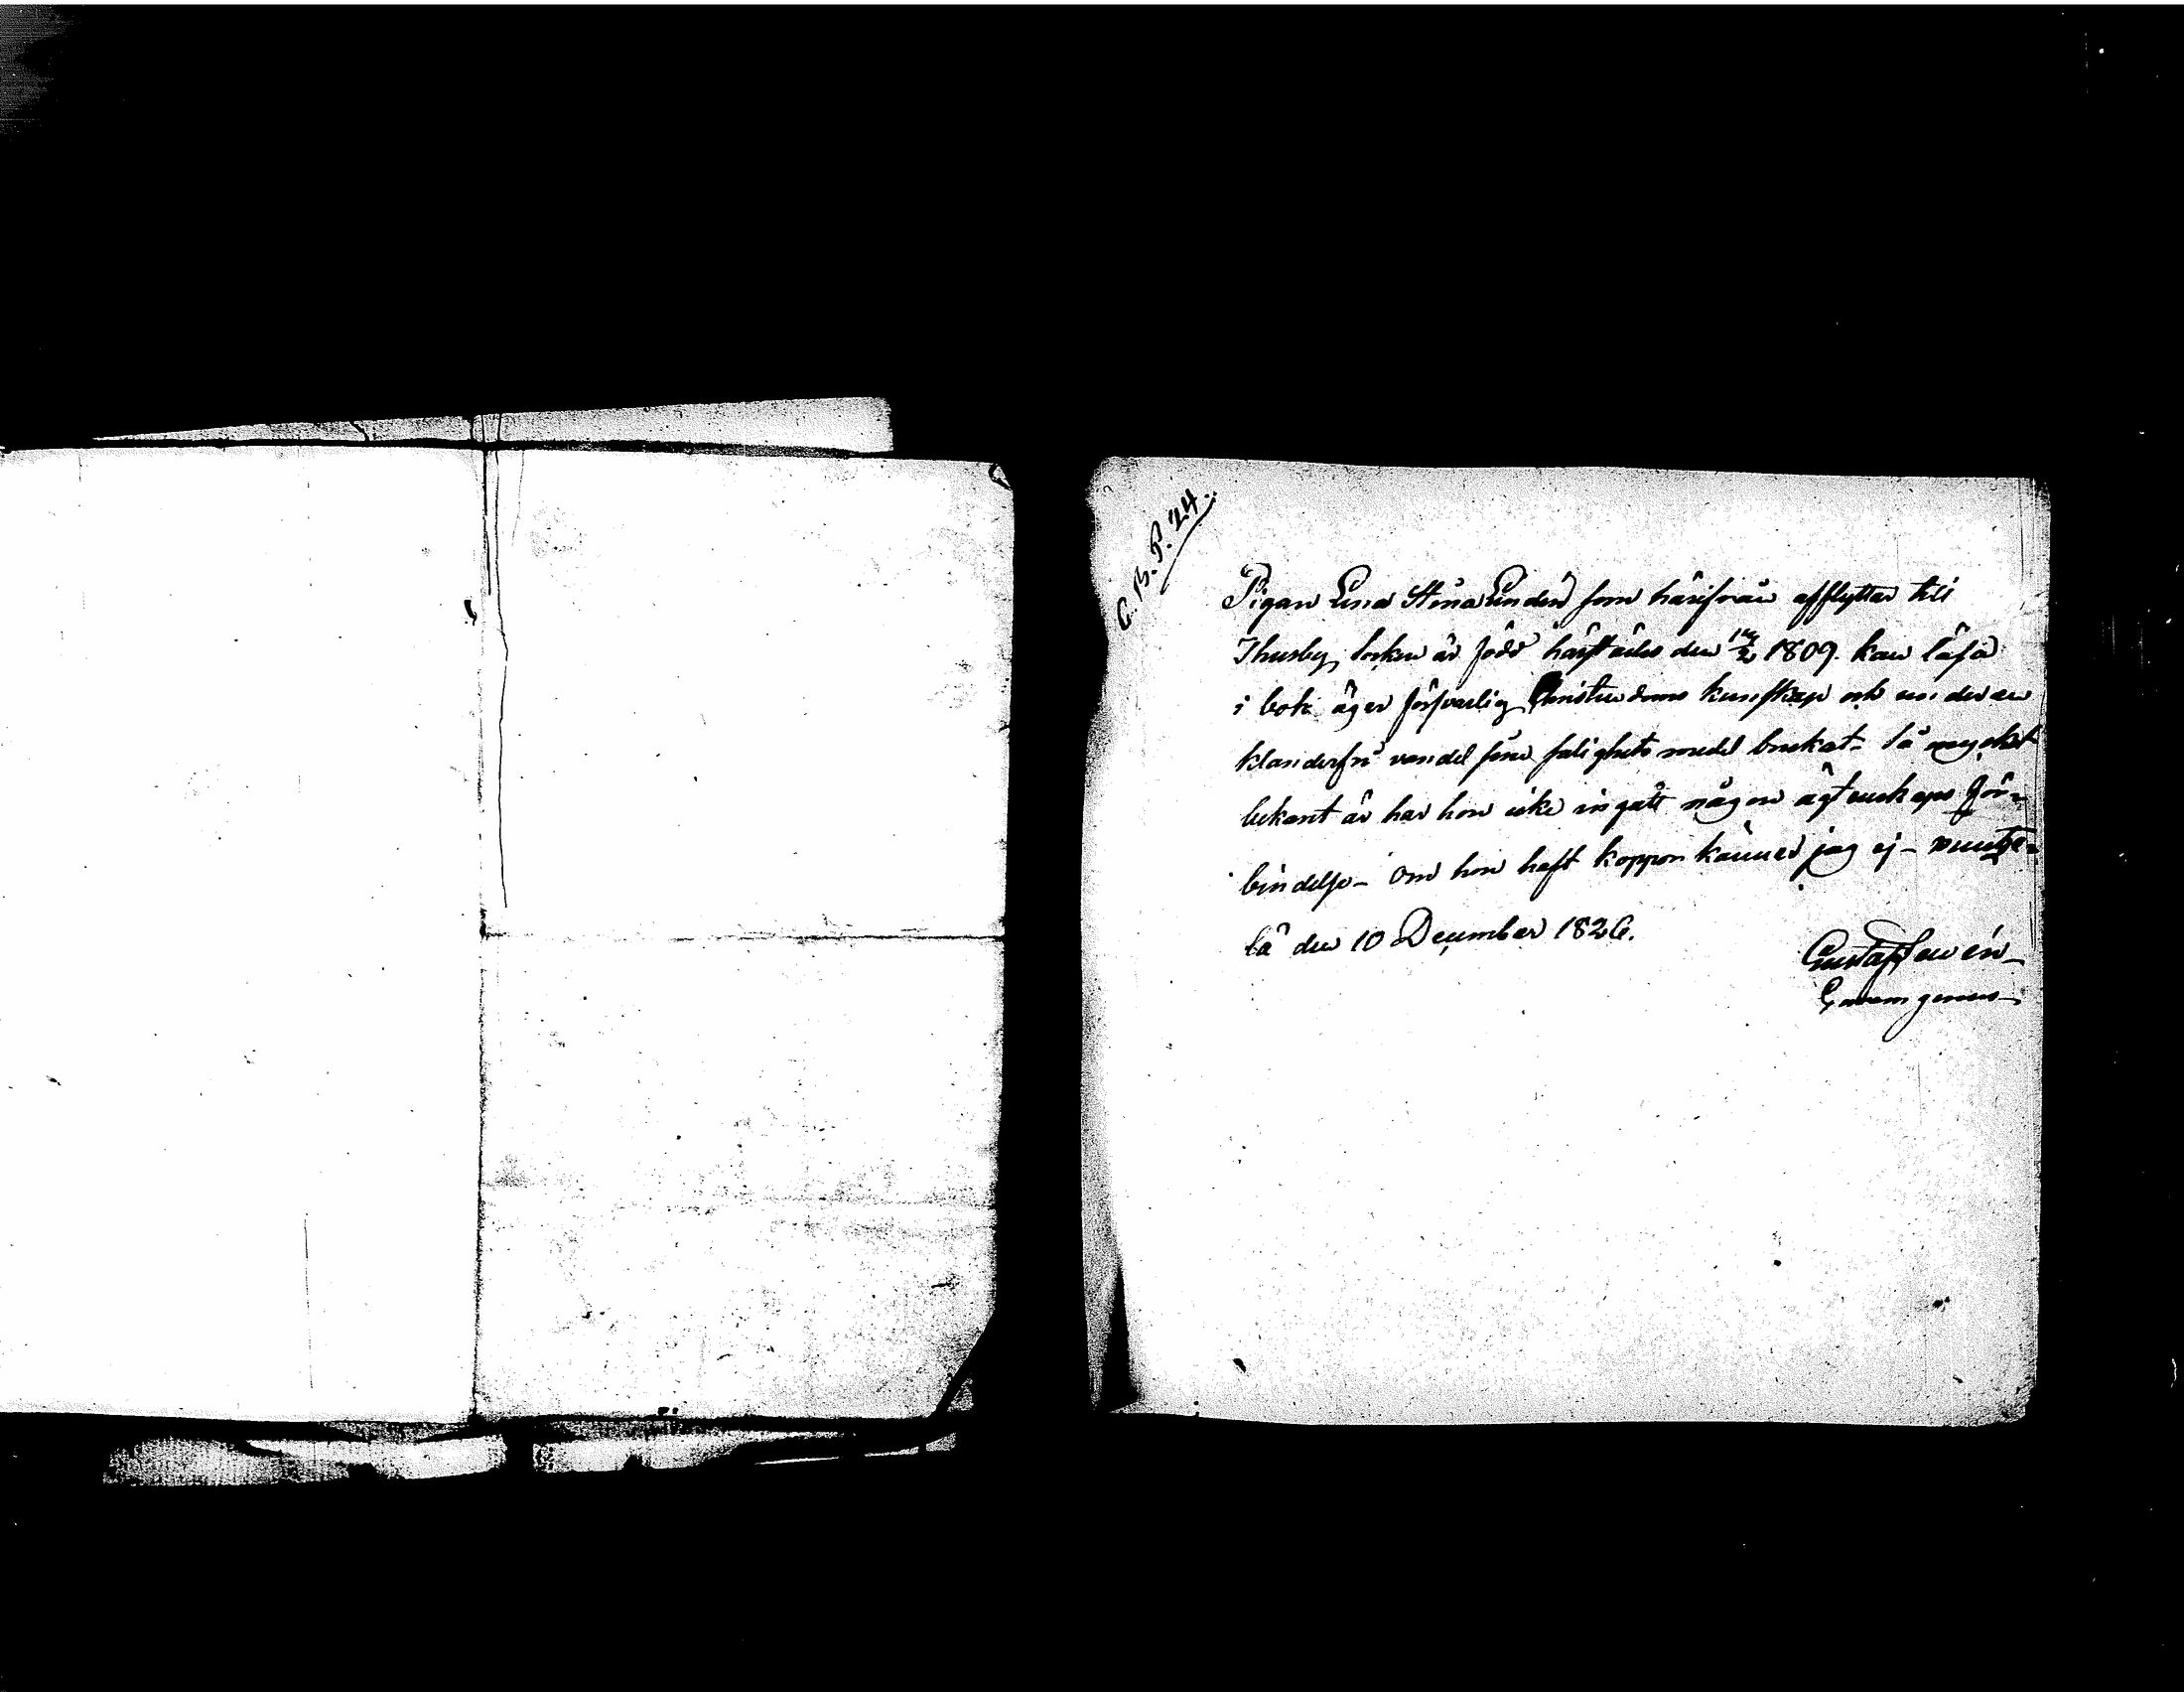 C. B. P. 24.
Pigan Lena Stina Lindén som härifrån afflyttar till
Thusby Socken är född härstädes den 14/2 1809. kan läsa
i bok äger försvarlig Christendoms kunskap och under en
klanderfri vandel sina salighets medel brukat. Så mycket
bekant är har hon icke ingått någon ägtenskaps För-
bindelse – Om hon haft koppor känner jag ej –
la den 10 December 1826.
Gustaf